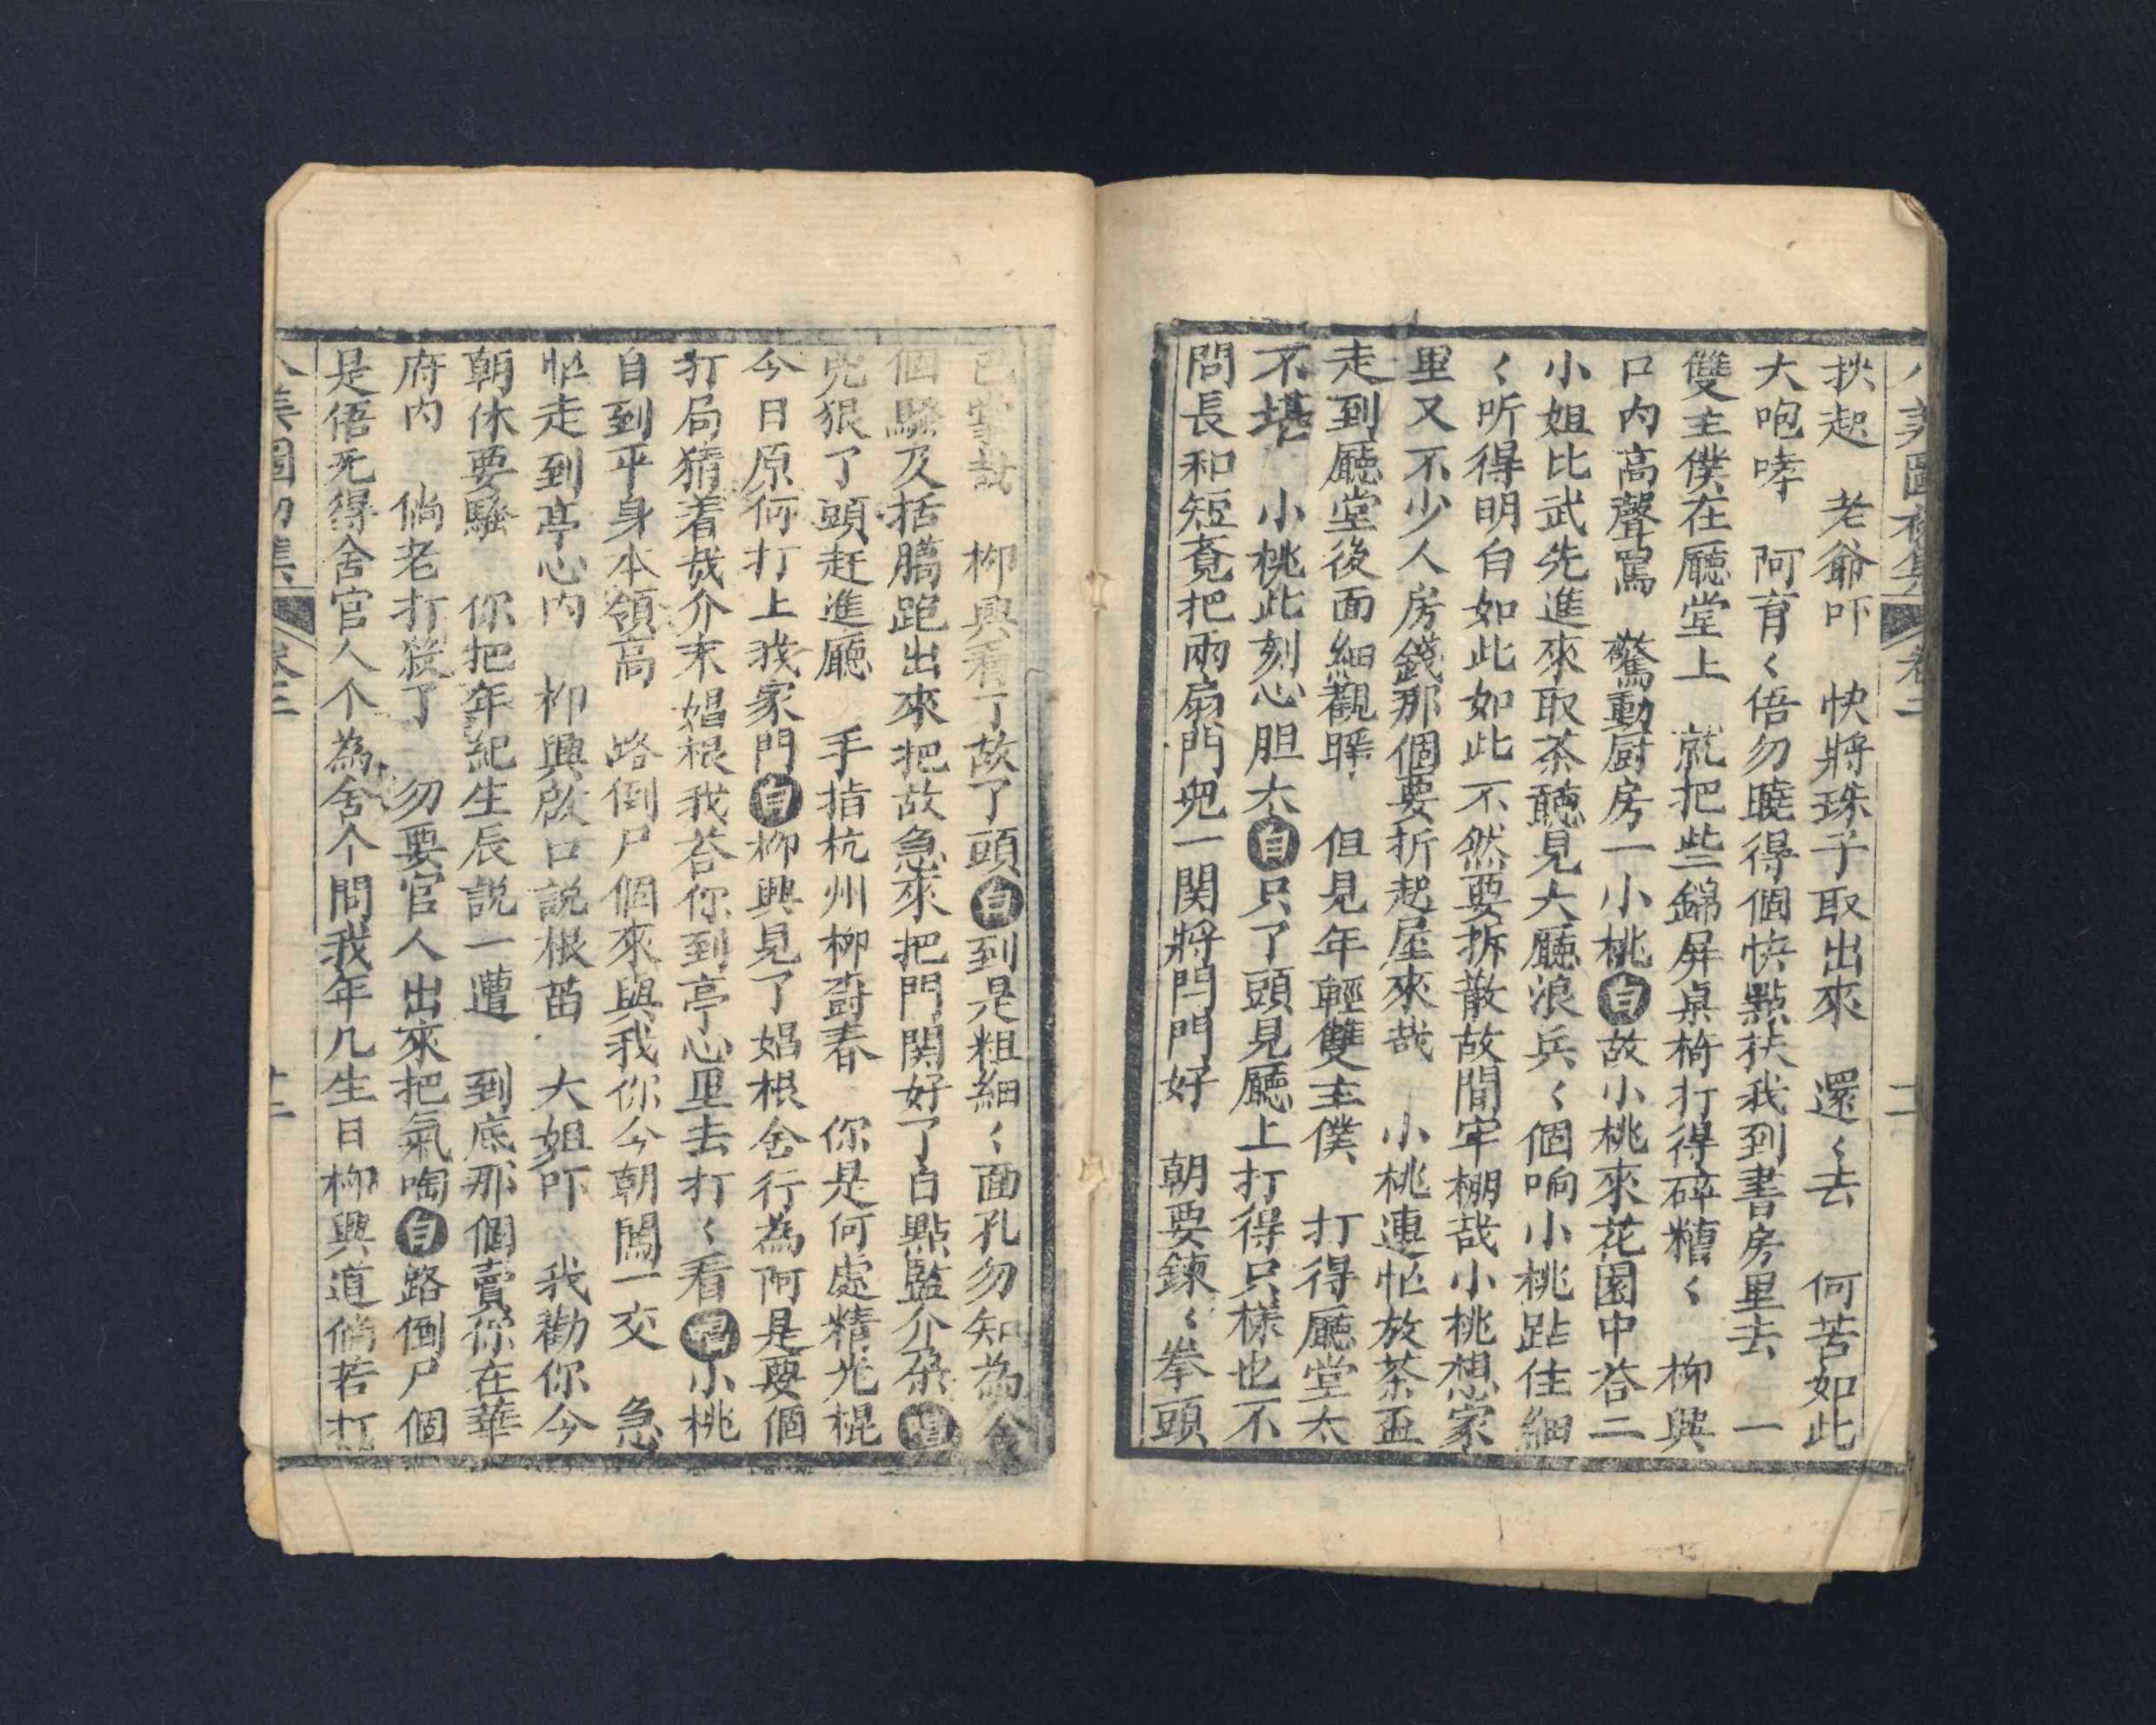 八美圖初集 卷二 十一
挾起 老爺吓 快將珠子取出來 還〻去 何苦如此
大咆哮 阿育〻俉勿曉得個快點扶我到書房里去 一
雙主僕在廳堂上 就把些錦屏桌椅打得碎糟〻 柳興
口内高聲罵 驚動厨房一小桃白故小桃來花園中荅二
小姐比武先進來取茶聽見大廳浪兵〻個响小桃跕住細
〻听得明白如此如此不然要拆散故間牢棚哉小桃想家
里又不少人房錢那個要折起屋來哉 小桃連忙放茶盃
走到廳堂後面細觀睬 但見年輕雙主僕 打得廳堂太
不堪 小桃此刻心胆大白只了頭見廳上打得只樣也不
問長和短竟把兩扇門兜一関將閂門好 朝要鍊〻拳頭
哉 柳興看了故了頭白到是粗細〻面孔勿知為舍
個騷及括膓跑出來把故急來把門関好了白點監介朶唱
兇狠了頭赶進廳 手指杭州柳樹春 你是何處精光棍
今日原何打上我家門白柳興見了娼根舍行為阿是要個
打局猜着哉介末娼根我荅你到亭心里去打〻看唱小桃
自到平身本領高 路倒尸個來與我你今朝鬪一交 急
忙走到亭心内 柳興啟口説根苗 大姐吓 我勸你今
朝休要騷 你把年紀生辰説一遭 到底那個賣你在華
府内 倘老打殺了 勿要官人出來把氣啕白路倒尸個
是俉死得舍官人个為舍个問我年几生日柳興道倘若打
八美圖初集 卷二 十二